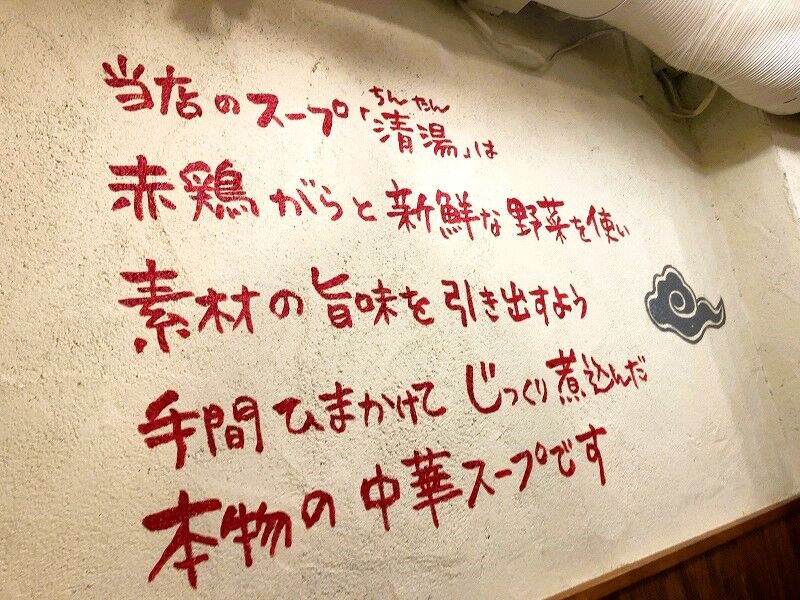 ちんたん
当店のスープ「清湯」は
赤鶏がらと新鮮な野菜を使い
素材の旨味を引き出すよう
手間ひまかけてじっくり煮込んだ
本物の中華スープです